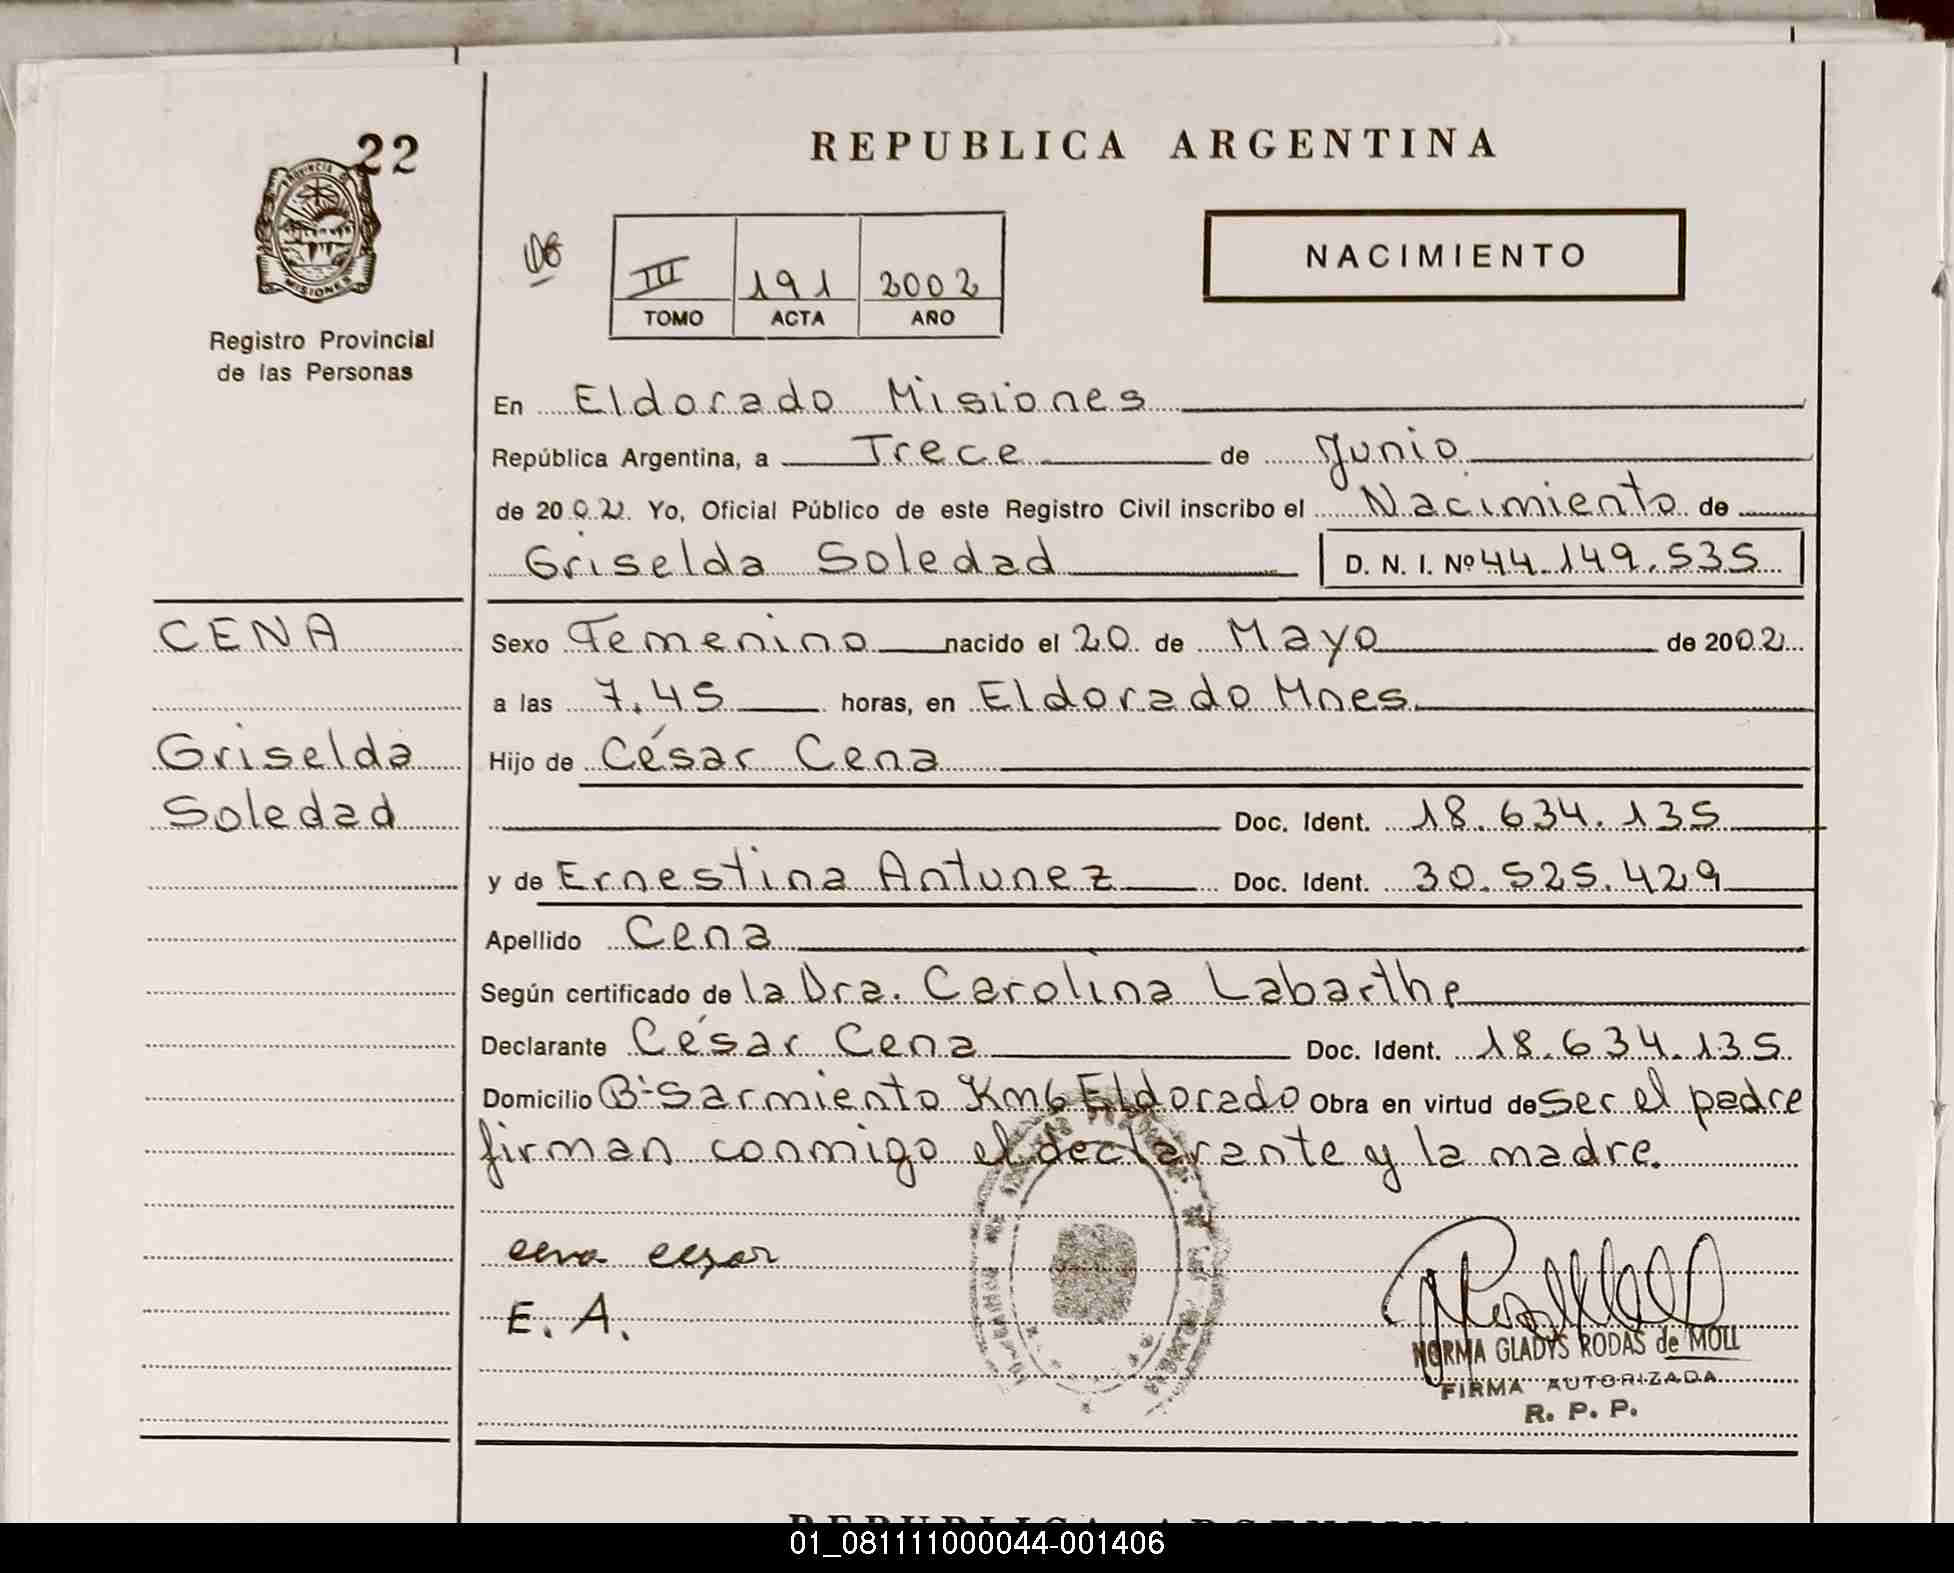 22
REPUBLICA ARGENTINA
PROVINCIA DE
MISIONES
Registro Provincial
de las Personas
III 191 2002
TOMO ACTA AÑO
NACIMIENTO
En Eldorado Misiones
República Argentina, a Trece de Junio
de 2002. Yo, Oficial Público de este Registro Civil inscribo el Nacimiento de
Griselda Soledad D. N. I. Nº 44.149.535
CENA
Griselda
Soledad
Sexo Femenino nacido el 20 de Mayo de 2002
a las 7.45 horas, en Eldorado Mnes.
Hijo de César Cena
Doc. Ident. 18.634.135
y de Ernestina Antunez Doc. Ident. 30.525.429
Apellido Cena
Según certificado de la Dra. Carolina Labarthe
Declarante César Cena Doc. Ident. 18.634.135
Domicilio Bº Sarmiento Km6 Eldorado Obra en virtud de Ser el padre
firman conmigo el declarante y la madre.
cena cezar
E. A.
NORMA GLADYS RODAS de MOLL
FIRMA AUTORIZADA
R. P. P.
REPUBLICA ARGENTINA
01_081111000044-001406